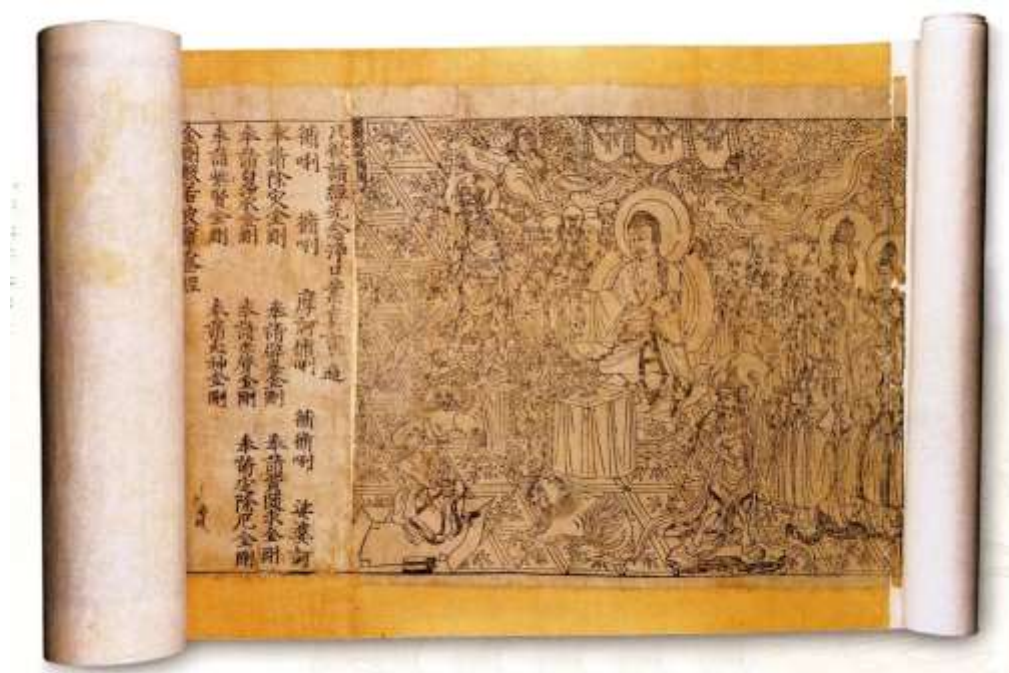 凡欲讀經先念淨口業真言遍
脩唎 脩唎 摩訶脩唎 脩脩唎 娑婆訶
奉請除災金剛 奉請辟毒金剛 奉請黃隨求金剛
奉請 金剛 奉請赤聲金剛 奉請定除厄金剛
奉請紫賢金剛 奉請大神金剛